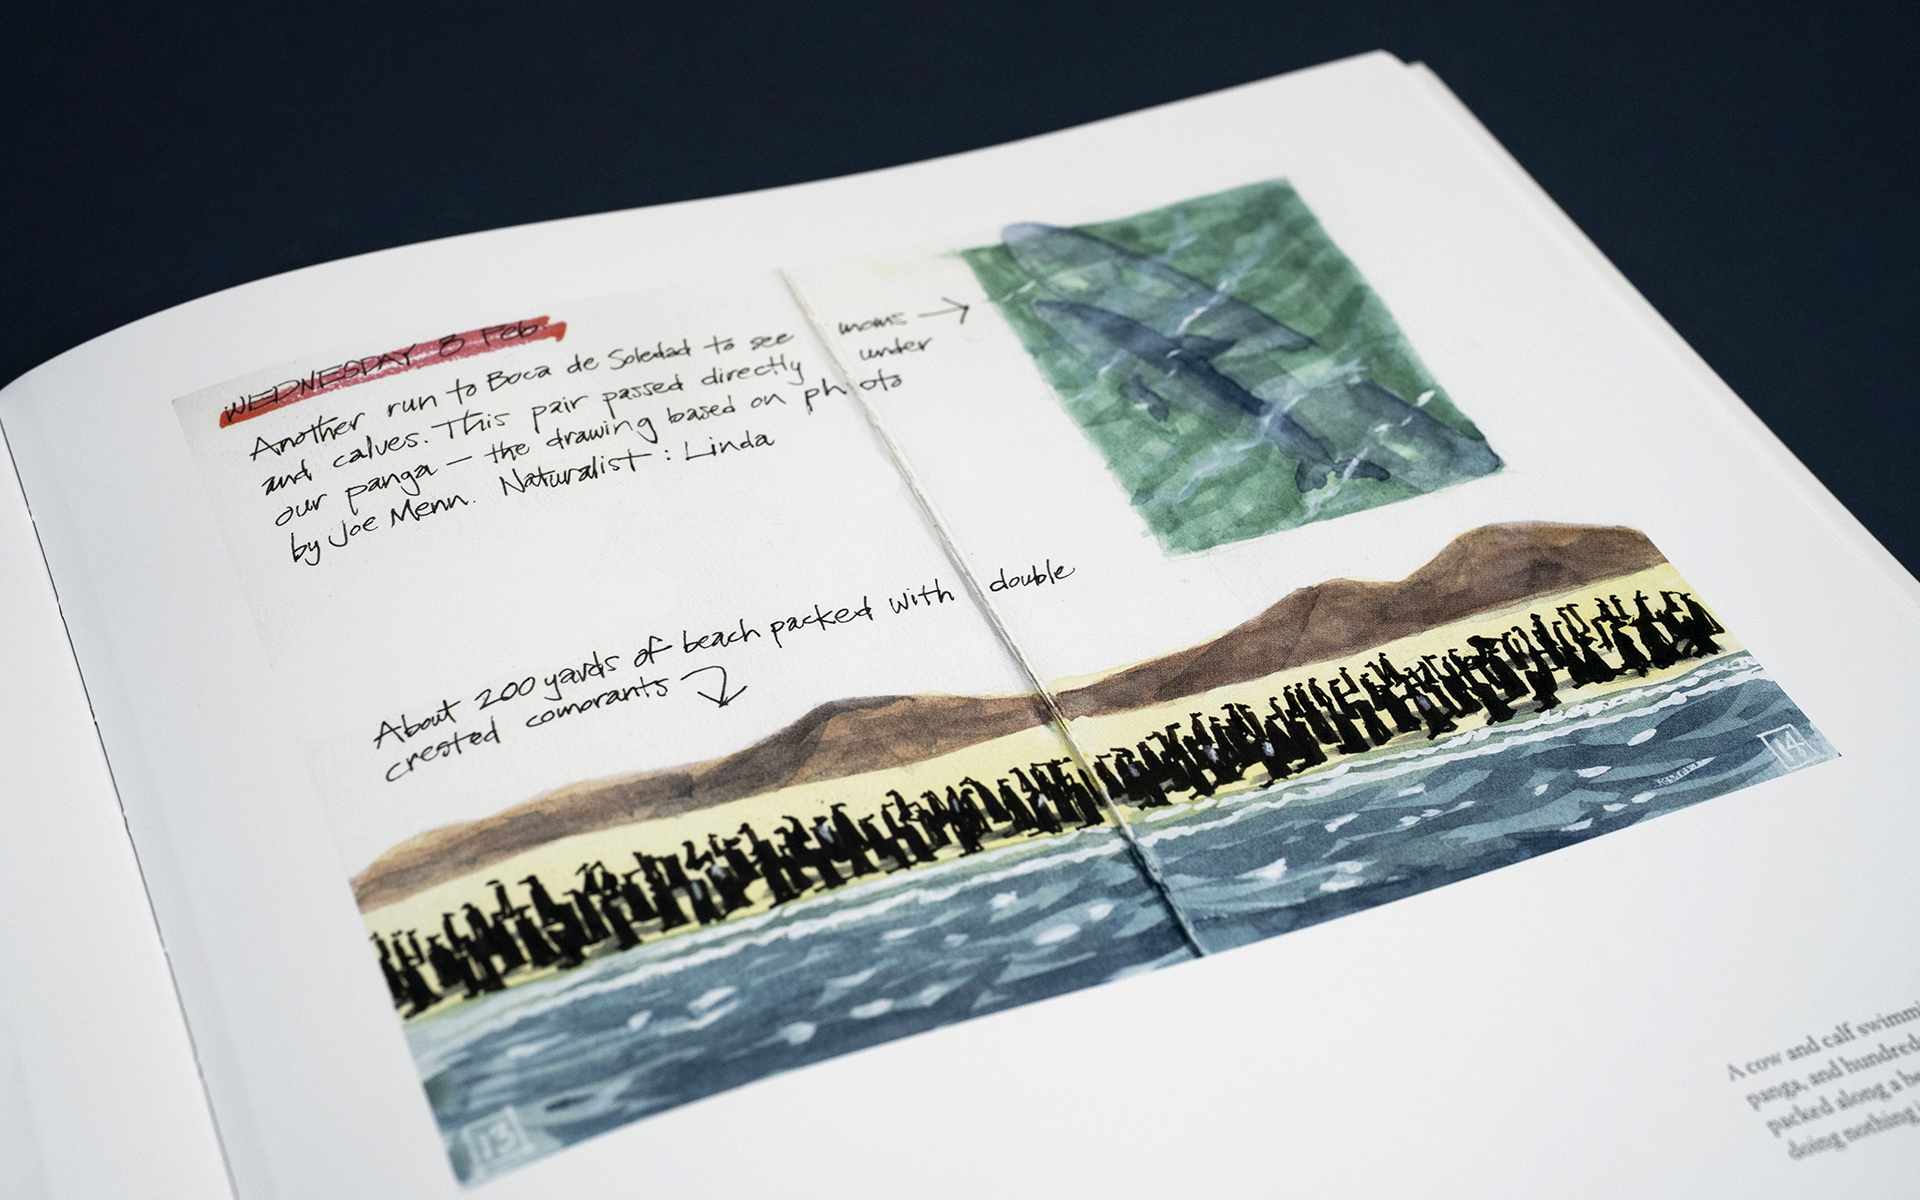 WEDNESDAY 3 Feb.
Another run to Boca de Soledad to see moms →
and calves. This pair passed directly under
our panga — the drawing based on photo
by Joe Menn. Naturalist: Linda
About 200 yards of beach packed with double
crested comorants
13
14
A cow and calf swimmi
panga, and hundred
packed along a be
doing nothing